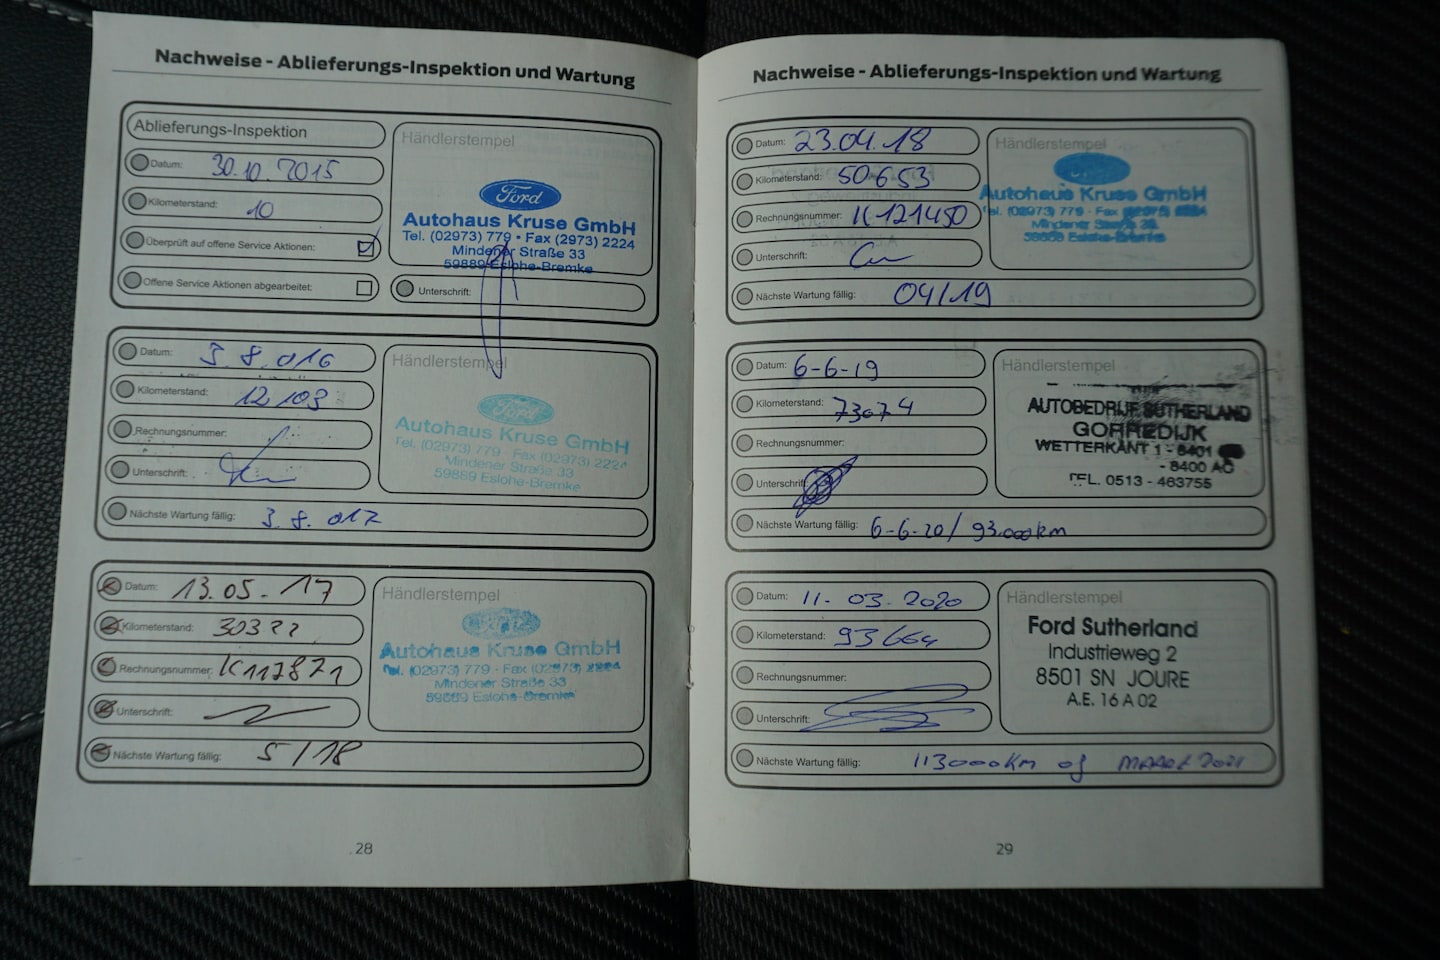 Nachweise - Ablieferungs-Inspektion und Wartung
Ablieferungs-Inspektion
Datum: 30.10.2015
Kilometerstand: 10
Überprüft auf offene Service Aktionen:
Offene Service Aktionen abgearbeitet:
Händlerstempel
Ford
Autohaus Kruse GmbH
Tel. (02973) 779 • Fax (2973) 2224
Mindener Straße 33
59889 Eslohe-Bremke
Unterschrift:
Datum: 3.8.016
Kilometerstand: 12103
Rechnungsnummer:
Unterschrift:
Nächste Wartung fällig: 3.8.017
Händlerstempel
Ford
Autohaus Kruse GmbH
Tel. (02973) 779 · Fax (02973) 2224
Mindener Straße 33
59889 Eslohe-Bremke
Datum: 13.05.17
Kilometerstand: 303??
Rechnungsnummer: K117871
Unterschrift:
Nächste Wartung fällig: 5/18
Händlerstempel
Autohaus Kruse GmbH
Tel. (02973) 779 - Fax (02973) 2224
Mindener Straße 33
59889 Eslohe-Bremke
28
Nachweise - Ablieferungs-Inspektion und Wartung
Datum: 23.04.18
Kilometerstand: 50653
Rechnungsnummer: K121450
Unterschrift:
Nächste Wartung fällig: 04/19
Händlerstempel
Autohaus Kruse GmbH
Tel. (02973) 779 - Fax
Mindener Straße 33
59889 Eslohe-Bremke
Datum: 6-6-19
Kilometerstand: 73074
Rechnungsnummer:
Unterschrift:
Nächste Wartung fällig: 6-6-20/ 93.000km
Händlerstempel
AUTOBEDRIJF SUTHERLAND
GORREDIJK
WETTERKANT 1 - 8401
- 8400 AG
TEL. 0513 - 463755
Datum: 11-03.2020
Kilometerstand: 93664
Rechnungsnummer:
Unterschrift:
Nächste Wartung fällig: 113000KM of MAART 2021
Händlerstempel
Ford Sutherland
Industrieweg 2
8501 SN JOURE
A.E. 16 A 02
29